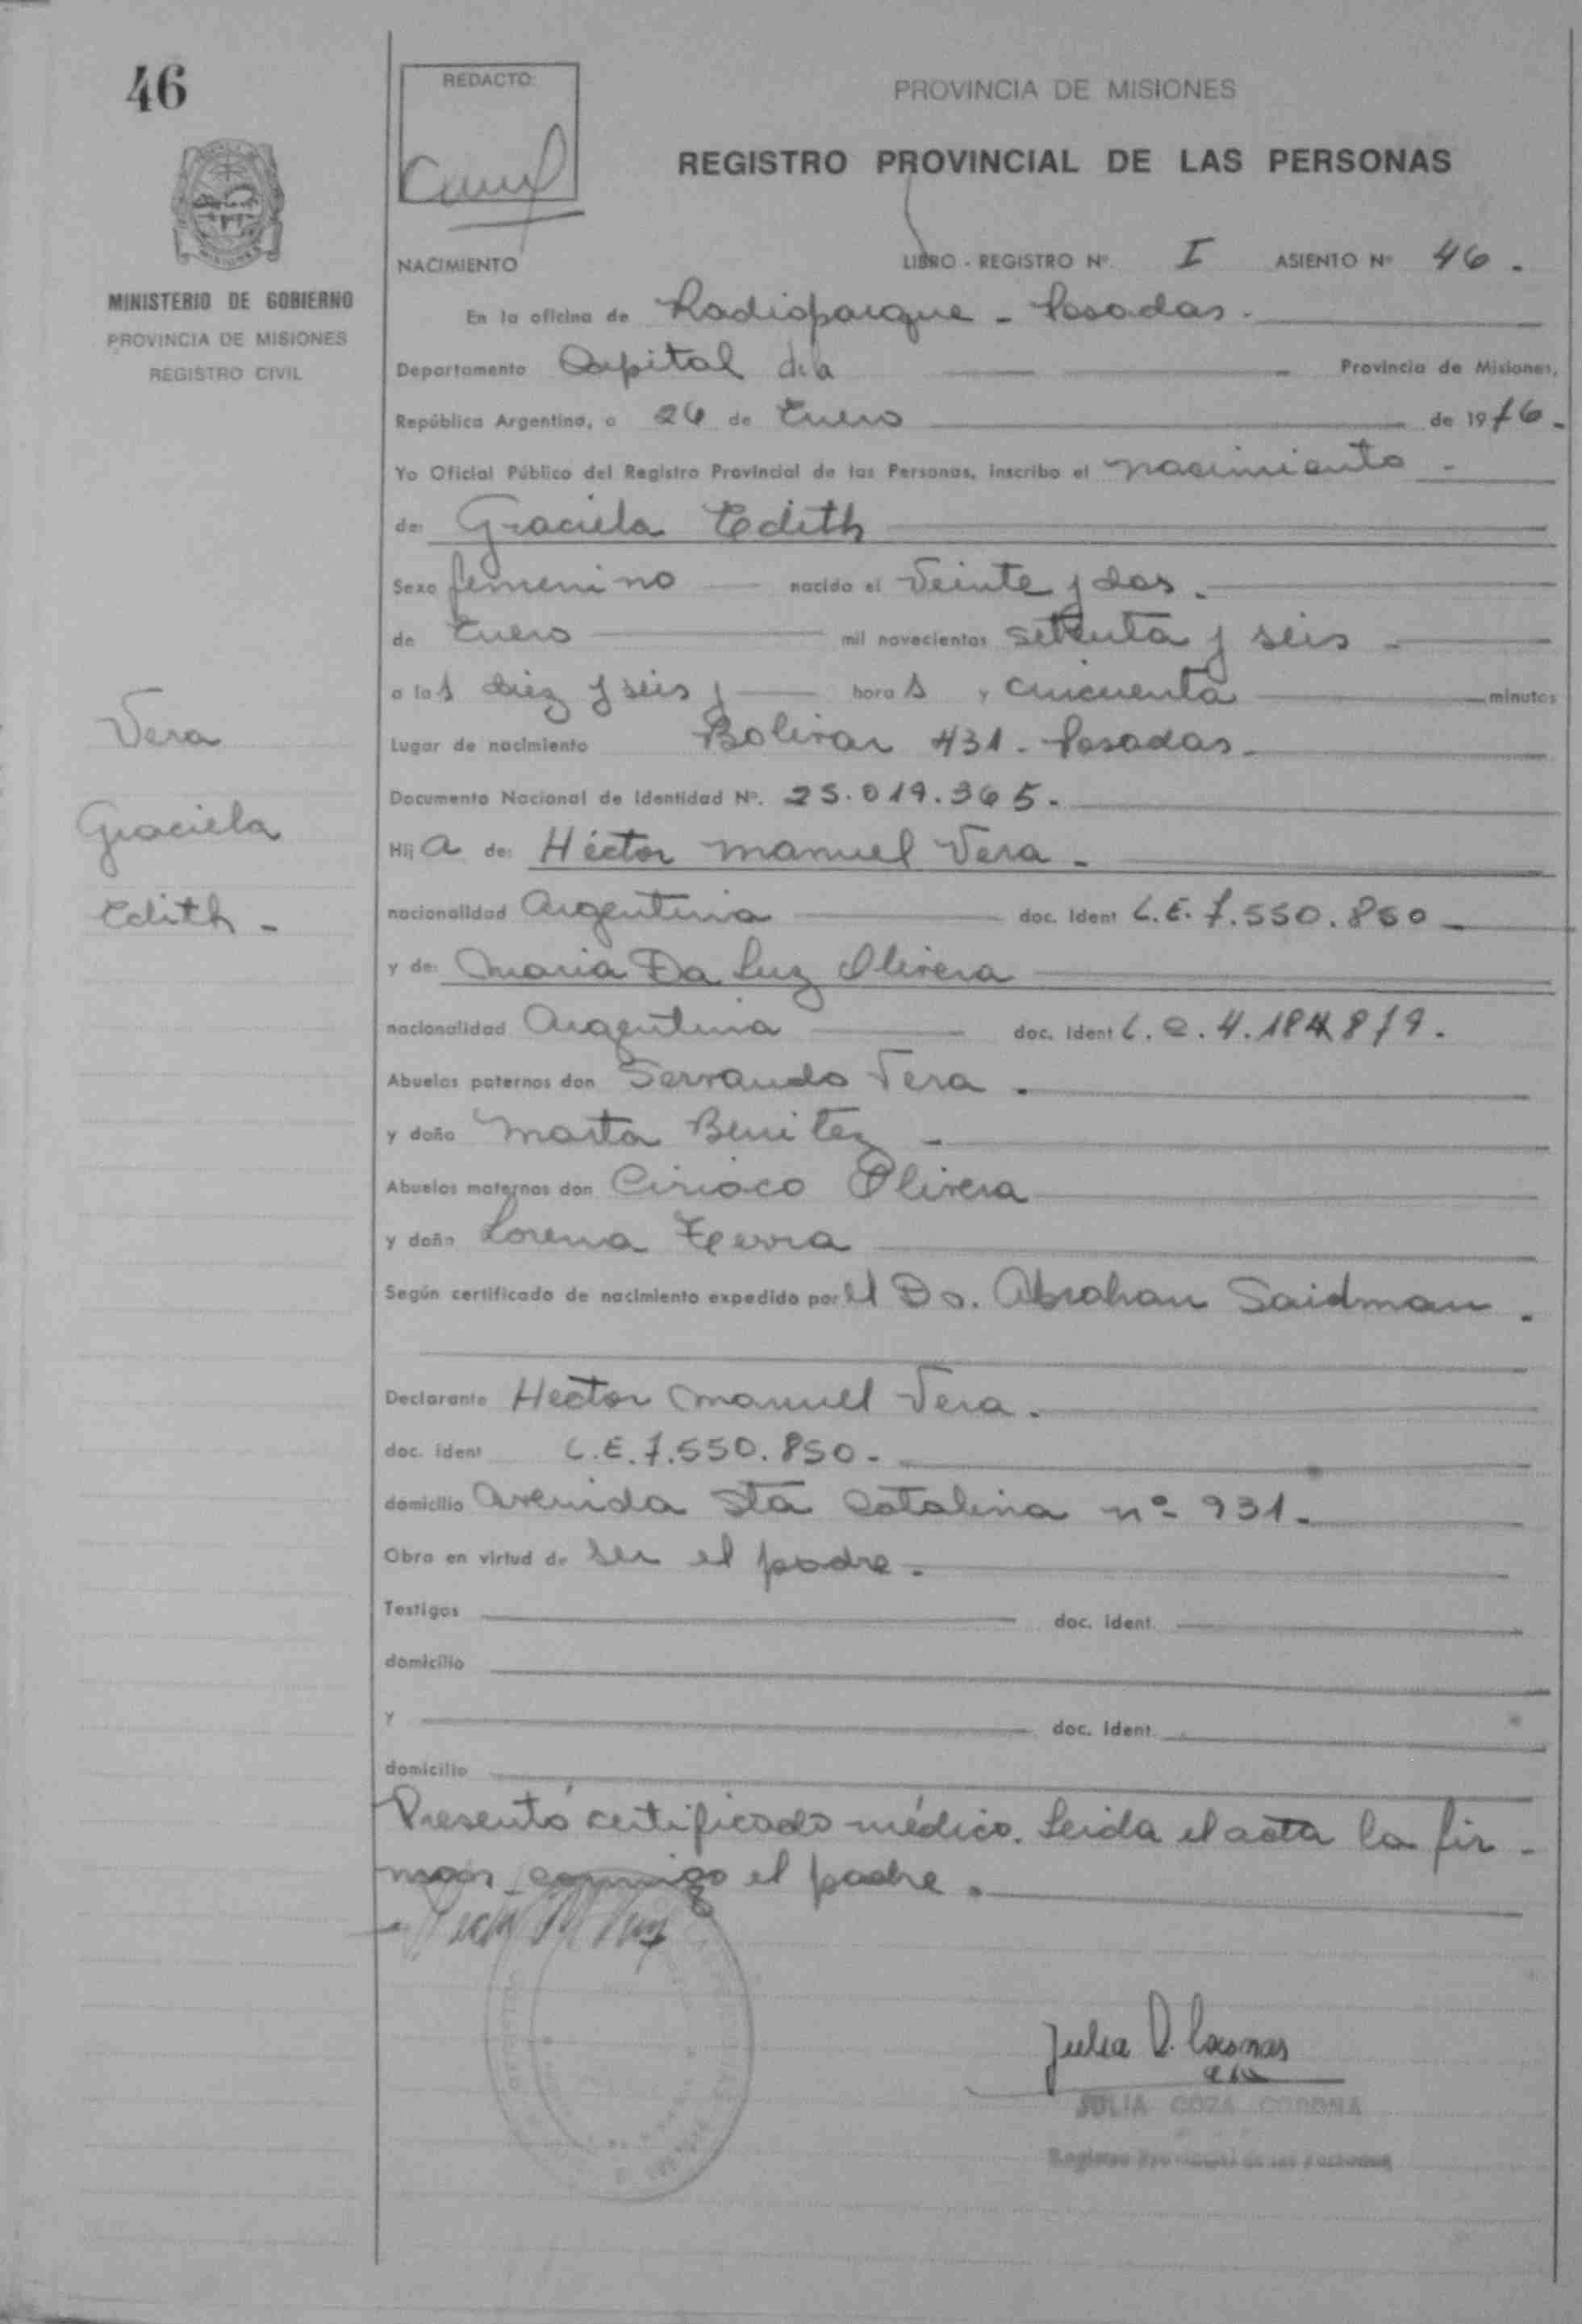 46
REDACTO:
PROVINCIA DE MISIONES
REGISTRO PROVINCIAL DE LAS PERSONAS
MINISTERIO DE GOBIERNO
PROVINCIA DE MISIONES
REGISTRO CIVIL
NACIMIENTO LIBRO - REGISTRO Nº. I ASIENTO Nº 46.
En la oficina de Radioparque - Posadas.
Departamento Capital de la Provincia de Misiones,
República Argentina, a 26 de Enero de 1976.
Yo Oficial Público del Registro Provincial de las Personas, inscribo el nacimiento -
de: Graciela Edith
Sexo femenino nacido el Veinte y dos.
de Enero mil novecientos setenta y seis -
a las diez y seis y horas y cincuenta minutos
Lugar de nacimiento Bolivar 431. Posadas.
Documento Nacional de Identidad Nº. 25.019.365.
Vera
Graciela
Edith -
Hija de: Héctor Manuel Vera -
nacionalidad Argentina doc. Ident L.E. 7.550.850
y de: Maria Da Luz Olivera
nacionalidad Argentina doc. Ident L.C. 4.184.879.
Abuelos paternos don Servando Vera.
y doña Marta Benitez -
Abuelos maternos don Ciriaco Olivera
y doña Lorena
Según certificado de nacimiento expedido por el Dr. Abrahan Saidman.
Declarante Hector Manuel Vera.
doc. ident L.E. 7.550.850.
domicilio Avenida Sta Catalina nº 931.
Obra en virtud de ser el padre.
Testigos doc. ident.
domicilio
y doc. Ident.
domicilio
Presentó certificado médico. Leida el acta la fir-
man conmigo el padre.
JULIA COZA CORONA
Registro Provincial de las Personas